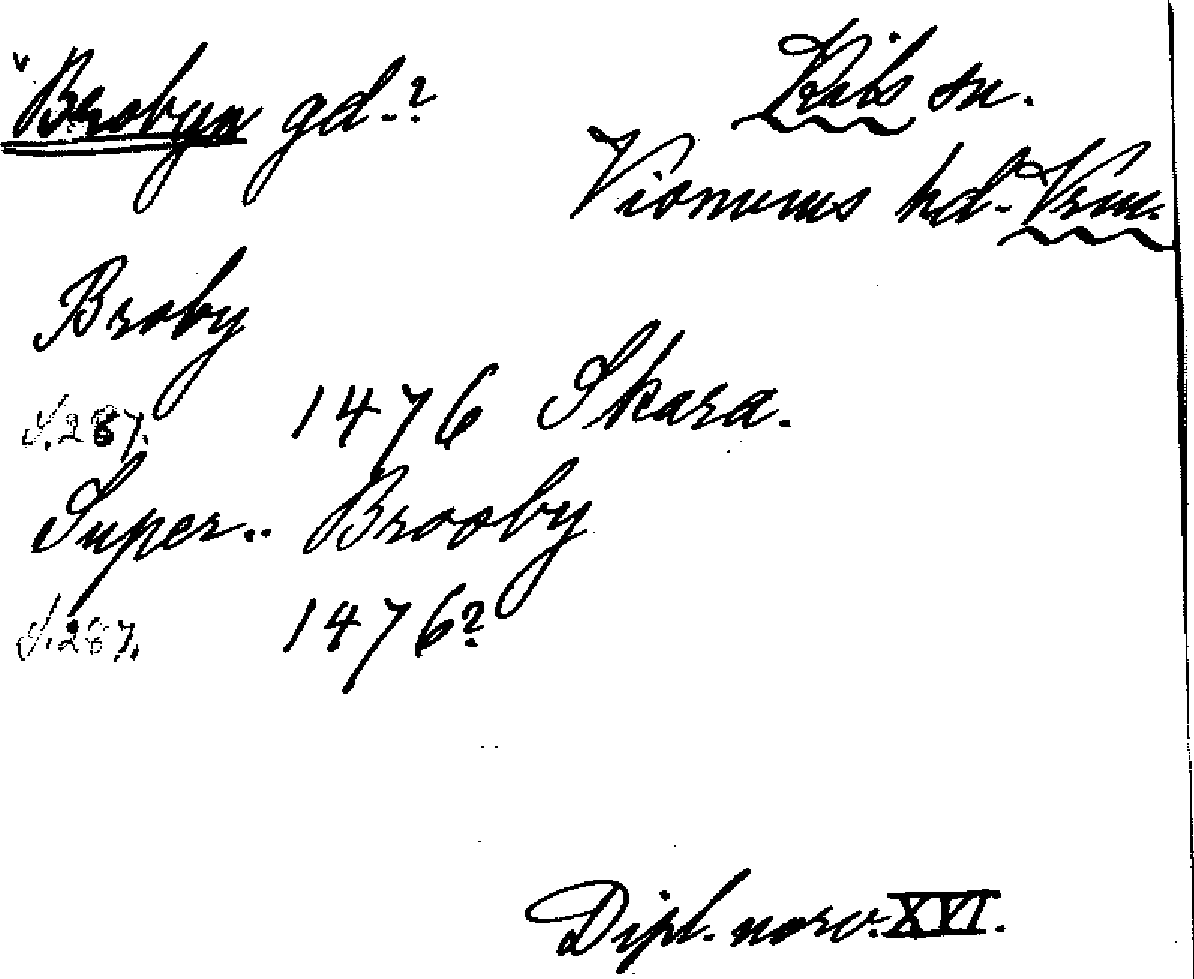 v Brobyn gd.? Kils sn.
Visnums hd. Vrm.
Broby
S. 287. 1476 Skara.
Super.. Brooby
S. 287. 1476?
Dipl. norv. XVI.